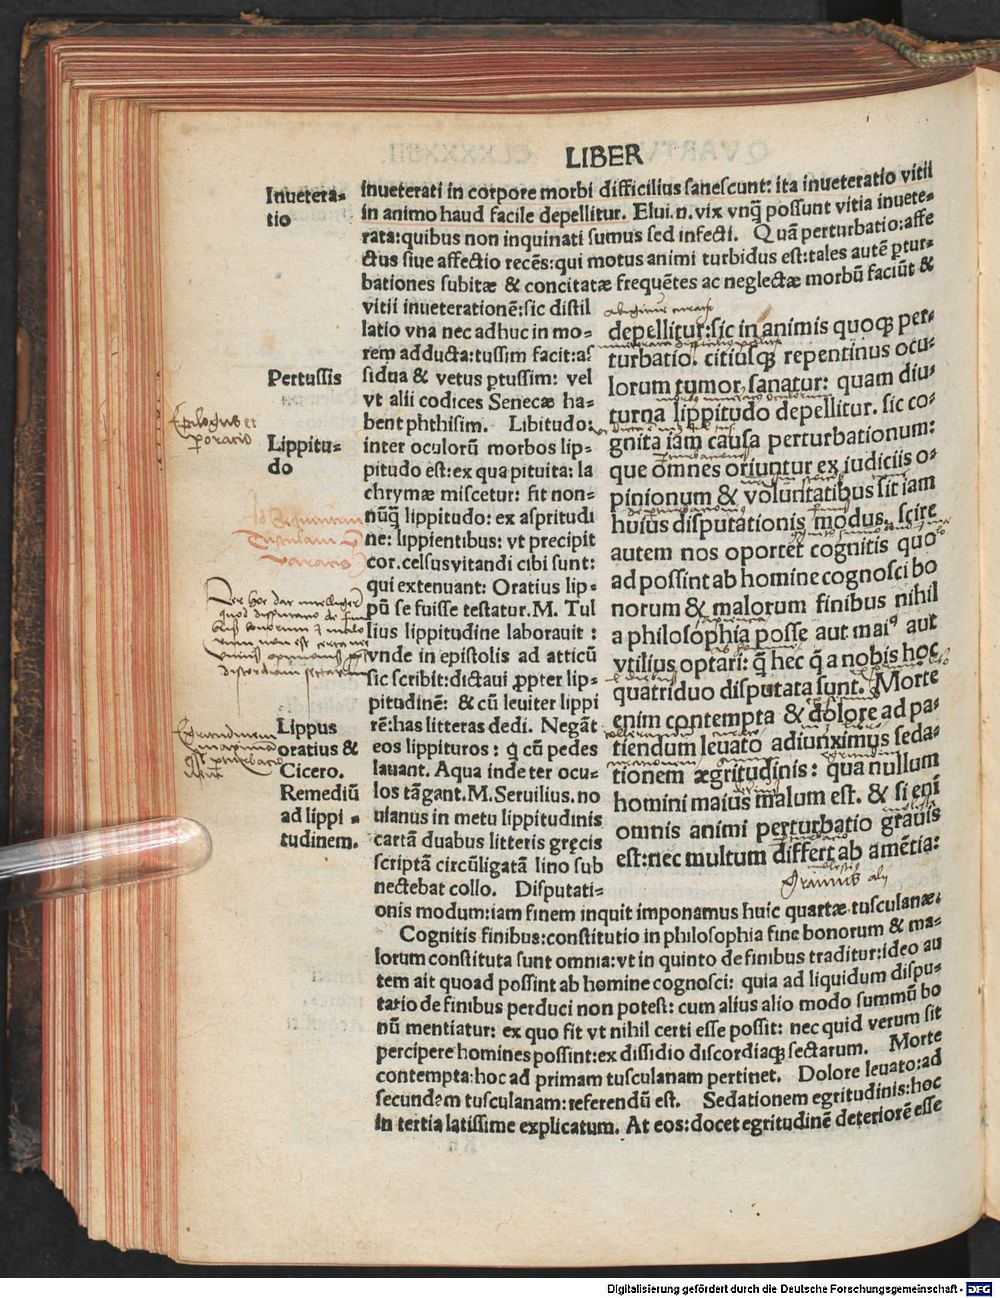 LIBER
Inuetera-
tio
inueterati in corpore morbi difficilius sanescunt: ita inueteratio vitii
in animo haud facile depellitur. Elui.n.vix vnq̃ possunt vitia inuete-
rata:quibus non inquinati sumus sed infecti. Quā perturbatio:affe
ctus siue affectio recēs:qui motus animi turbidus est:tales autē ꝑtur-
bationes subitæ & concitatæ frequētes ac neglectæ morbū faciūt &
vitii inueterationē:sic distil
latio vna nec adhuc in mo-
rem adducta:tussim facit:as
sidua & vetus ptussim: vel
vt alii codices Senecæ ha-
bent phthisim. Libitudo:
inter oculorū morbos lip-
pitudo est:ex qua pituita: la
chrymæ miscetur: fit non-
nūq̃ lippitudo: ex aspritudi
ne: lippientibus: vt precipit
cor.celsus vitandi cibi sunt:
qui extenuant: Oratius lip-
pū se fuisse testatur.M. Tul
lius lippitudine laborauit :
vnde in epistolis ad atticū
sic scribit:dictaui ꝓpter lip-
pitudinē: & cū leuiter lippi
rē:has litteras dedi. Negāt
eos lippituros : q̇ cū pedes
lauant. Aqua inde ter ocu-
los tāgant.M.Seruilius.no
uianus in metu lippitudinis
cartā duabus litteris gręcis
scriptā circūligatā lino sub
nectebat collo. Disputati-
Pertussis
Lippitu-
do
Lippus
oratius &
Cicero.
Remediū
ad lippi -
tudinem.
Epilogus et
depellitur:sic in animis quoqꝫ per-
turbatio. citiusqꝫ repentinus ocu-
lorum tumor sanatur: quam diu-
turna lippitudo depellitur. sic co-
gnita iam causa perturbationum:
que omnes oriuntur ex iudiciis o-
pinionum & voluntatibus sit iam
huius disputationis modus. scire
autem nos oportet cognitis quo
ad possint ab homine cognosci bo
norum & malorum finibus nihil
a philosophia posse aut maiꝰ aut
vtilius optari: q̃ hec q̃ a nobis hoc
quatriduo disputata sunt. Morte
enim contempta & dolore ad pa-
tiendum leuato adiunximus seda-
tionem ægritudinis: qua nullum
homini maius malum est. & si eni
omnis animi perturbatio grauis
est:nec multum differt ab amētia:
onis modum:iam finem inquit imponamus huic quartæ tusculanæ:
Cognitis finibus:constitutio in philosophia fine bonorum & ma-
lorum constituta sunt omnia:vt in quinto de finibus traditur:ideo au
tem ait quoad possint ab homine cognosci: quia ad liquidum dispu-
tatio de finibus perduci non potest: cum alius alio modo summū bo
nū mentiatur: ex quo fit vt nihil certi esse possit: nec quid verum sit
percipere homines possint:ex dissidio discordiaqꝫ sectarum. Morte
contempta:hoc ad primam tusculanam pertinet. Dolore leuato:ad
secundam tusculanam:referendū est. Sedationem egritudinis:hoc
in tertia latissime explicatum. At eos:docet egritudinē deteriorē esse
Digitalisierung gefördert durch die Deutsche Forschungsgemeinschaft - DFG